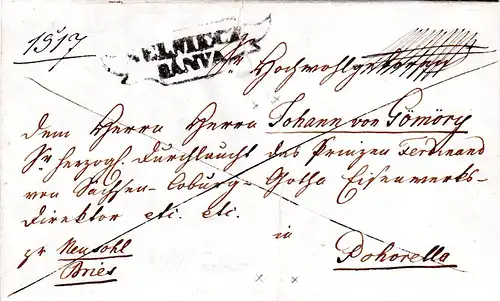 1517
SELMECZ
BÁNYA
Sr Hochwohlgeboren
dem Herrn Herrn Johann von Gömöry
Sr Herzogl. Durchlaucht des Prinzen Ferdinand
von Sachsen-Coburg-Gotha Eisenwerks-
direktor etc. etc.
in
pr Neusohl
Bries
Pohorella